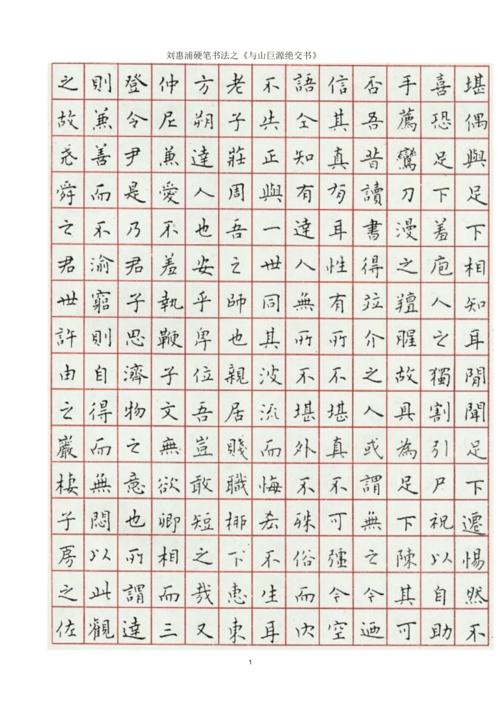 刘惠浦硬笔书法之《与山巨源绝交书》
堪偶與足下相知耳閒聞足下遷惕然不
喜恐足下羞庖人之獨割引尸祝以自助
手薦鸞刀漫之羶腥故具為足下陳其可
否吾昔讀書得竝介之人或謂無之今迺
信其真有耳性有所不堪真不可彊今空
語仝知有達人無所不堪外不殊俗而内
不失正與一世同其波流而悔吝不生耳
老子莊周吾之師也親居賤職柳下惠東
方朔達人也安乎卑位吾豈敢短之哉又
仲尼兼愛不羞執鞭子文無欲卿相而三
登令尹是乃君子思濟物之意也所謂達
則兼善而不渝窮則自得而無悶以此觀
之故堯舜之君世許由之巖棲子房之佐
1